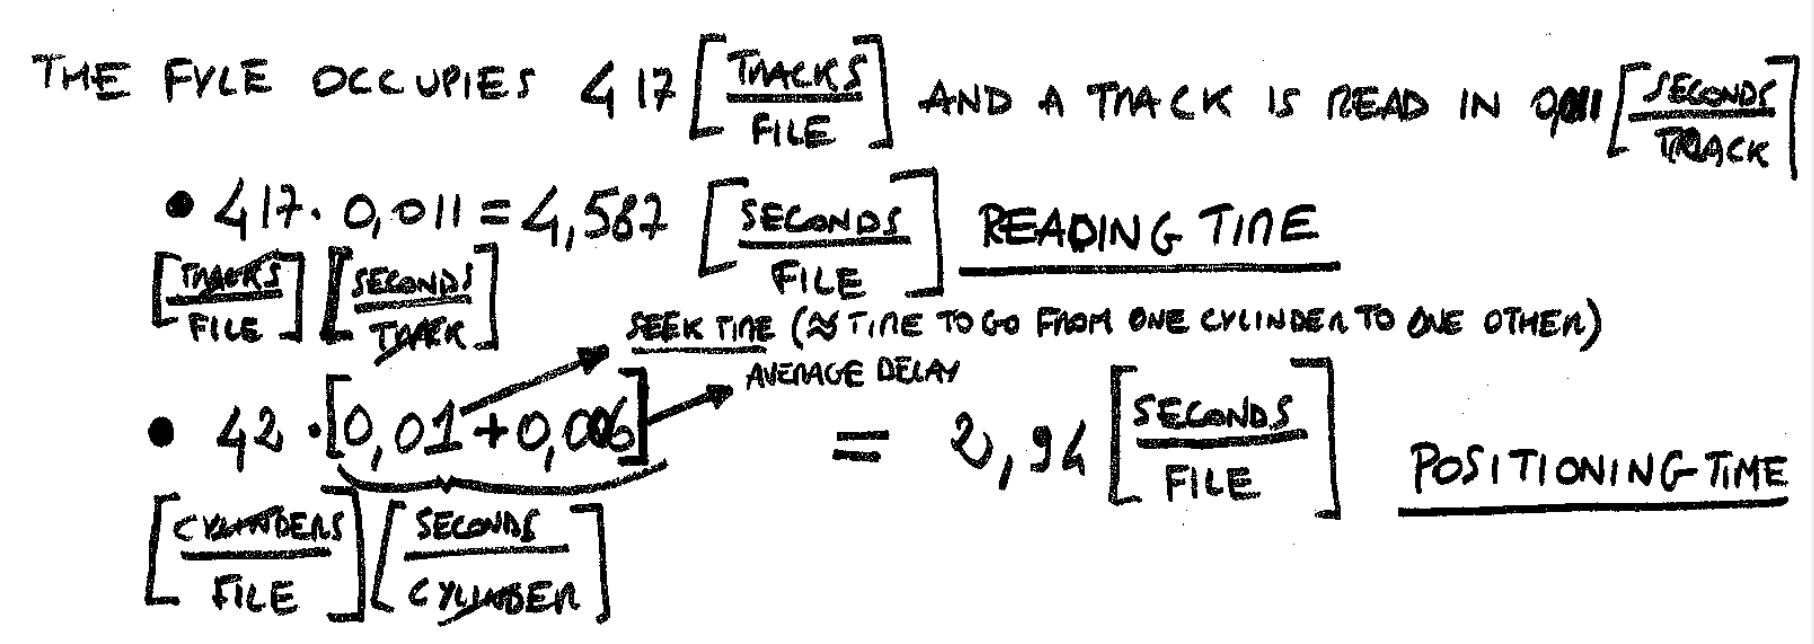 THE FYLE OCCUPIES 417 [TRACKS/FILE] AND A TRACK IS READ IN 0,011 [SECONDS/TRACK]
• 417 · 0,011 = 4,587 [SECONDS/FILE] READING TIME
[TRACKS/FILE] [SECONDS/TRACK]
SEEK TIME (≈ TIME TO GO FROM ONE CYLINDER TO ONE OTHER)
AVERAGE DELAY
• 42 · [0,01 + 0,006] = 2,94 [SECONDS/FILE] POSITIONING TIME
[CYLINDERS/FILE] [SECONDS/CYLINDER]